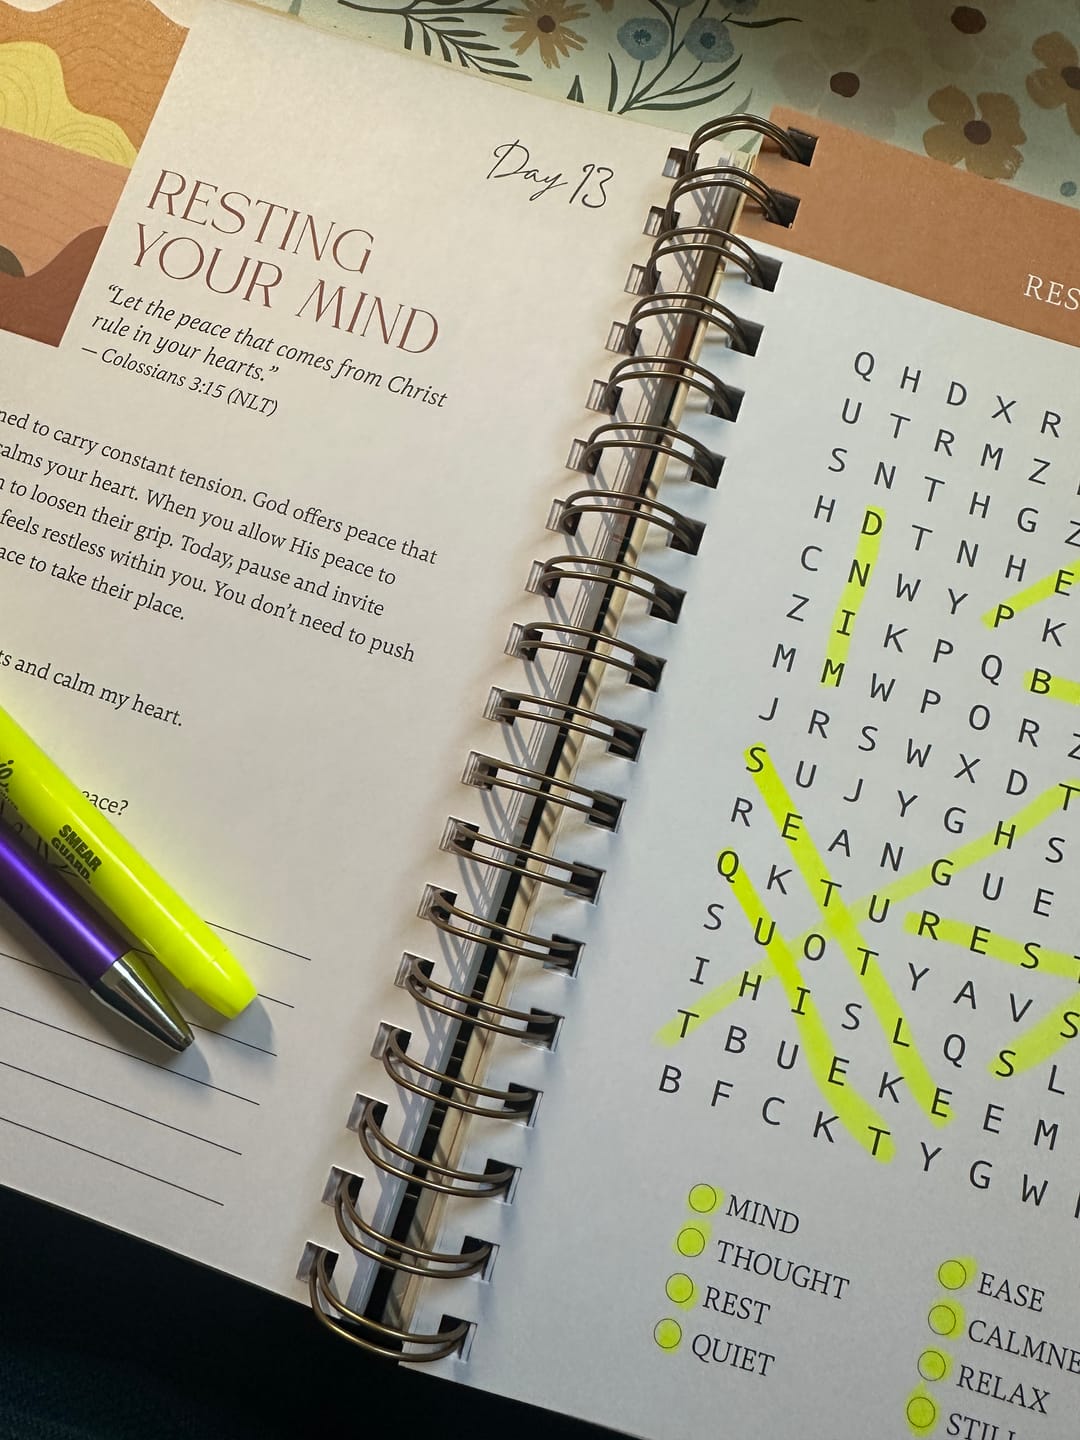 Day 13
RESTING
YOUR MIND
“Let the peace that comes from Christ
rule in your hearts.”
— Colossians 3:15 (NLT)
to carry constant tension. God offers peace that
calms your heart. When you allow His peace to
to loosen their grip. Today, pause and invite
feels restless within you. You don’t need to push
to take their place.
and calm my heart.
SMEAR
GUARD
Q H D X R
U T R M Z
S N T H G Z
H D T N H E
C N W Y P K
Z I K P Q B
M M W P O R Z
J R S W X D T
S U J Y G H S
R E A N G U E
Q K T U R E S T
S U O T Y A V S
I H I S L Q S L
T B U E K E E M
B F C K T Y G W
MIND
THOUGHT
REST
QUIET
EASE
RELAX